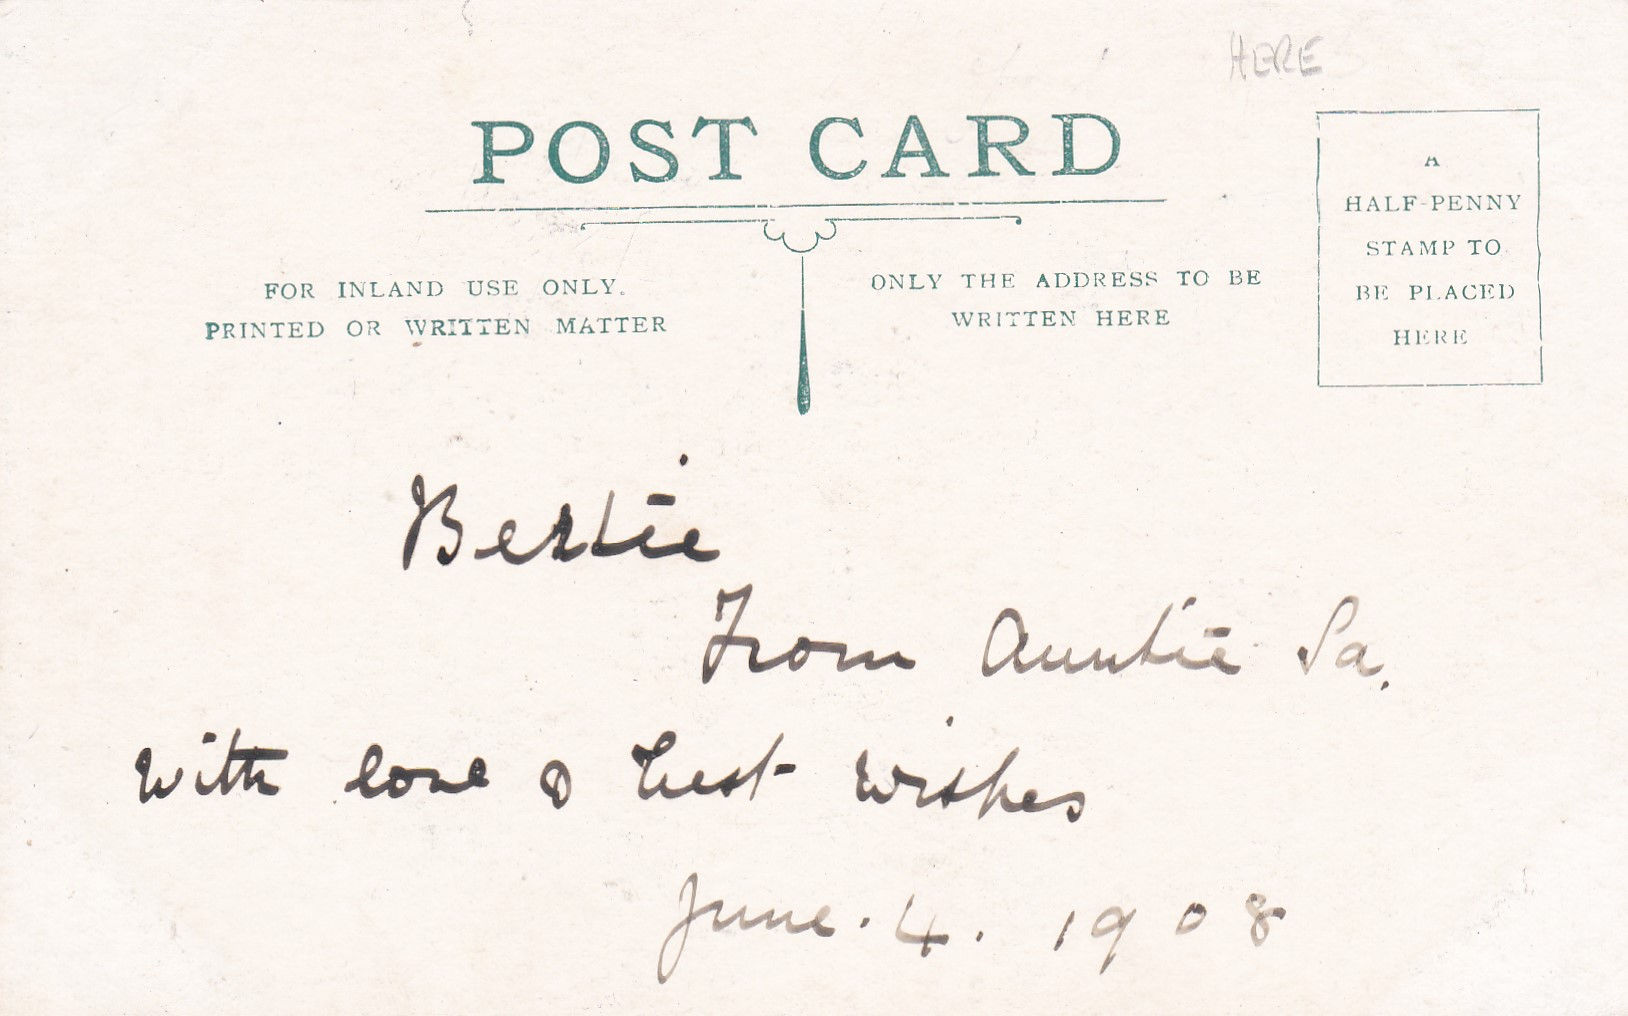 HERE
POST CARD
FOR INLAND USE ONLY.
PRINTED OR WRITTEN MATTER
ONLY THE ADDRESS TO BE
WRITTEN HERE
A
HALF-PENNY
STAMP TO
BE PLACED
HERE
Bertie
From Auntie Sa.
With love & best wishes
June. 4. 1908